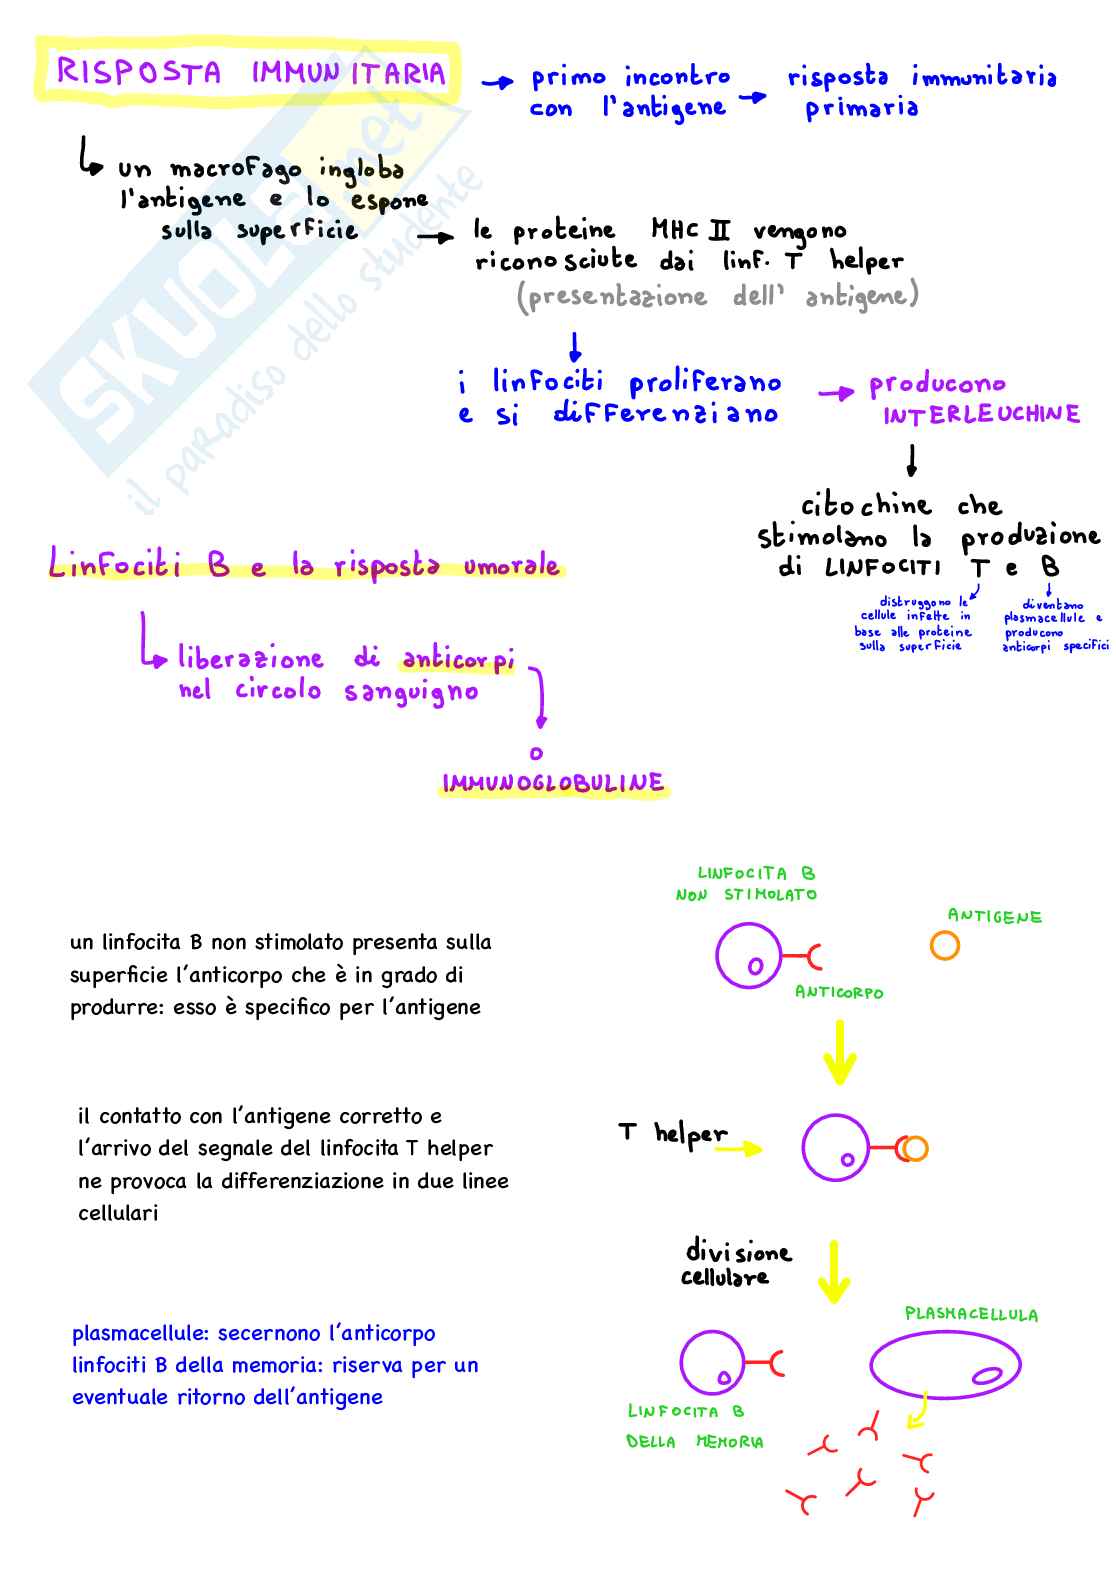 RISPOSTA IMMUNITARIA
primo incontro
con l'antigene
risposta immunitaria
primaria
un macrofago ingloba
l'antigene e lo espone
sulla superficie
le proteine MHC II vengono
riconosciute dai linf. T helper
(presentazione dell' antigene)
i linfociti proliferano
e si differenziano
producono
INTERLEUCHINE
citochine che
stimolano la produzione
di LINFOCITI T e B
distruggono le
cellule infette in
base alle proteine
sulla superficie
diventano
plasmacellule e
producono
anticorpi specifici
SKUOLA.net
il paradiso dello studente
Linfociti B e la risposta umorale
liberazione di anticorpi
nel circolo sanguigno
o
IMMUNOGLOBULINE
LINFOCITA B
NON STIMOLATO
ANTIGENE
ANTICORPO
un linfocita B non stimolato presenta sulla
superficie l'anticorpo che è in grado di
produrre: esso è specifico per l'antigene
il contatto con l'antigene corretto e
l'arrivo del segnale del linfocita T helper
ne provoca la differenziazione in due linee
cellulari
T helper
divisione
cellulare
PLASMACELLULA
plasmacellule: secernono l'anticorpo
linfociti B della memoria: riserva per un
eventuale ritorno dell'antigene
LINFOCITA B
DELLA MEMORIA